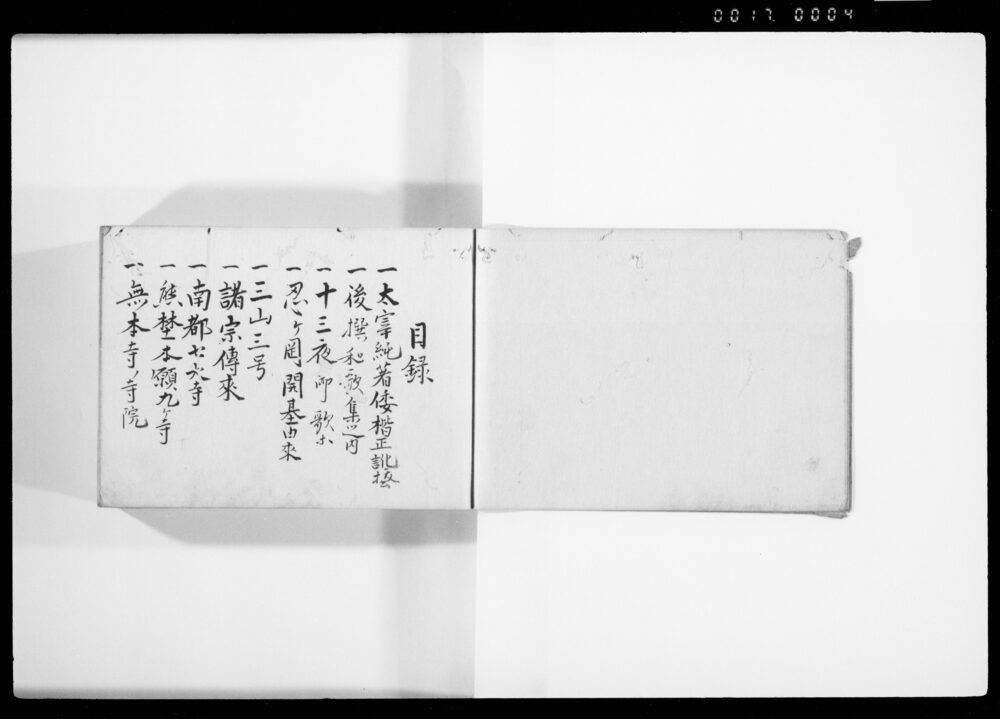 0017 0004
目録
一太宰純著倭楷正訛抜
一後撰和歌集之内
一十三夜御歌
一忍ヶ岡開基由来
一三山三号
一諸宗傳来
一南都七大寺
一熊埜本願九ヶ寺
一無本寺ノ寺院